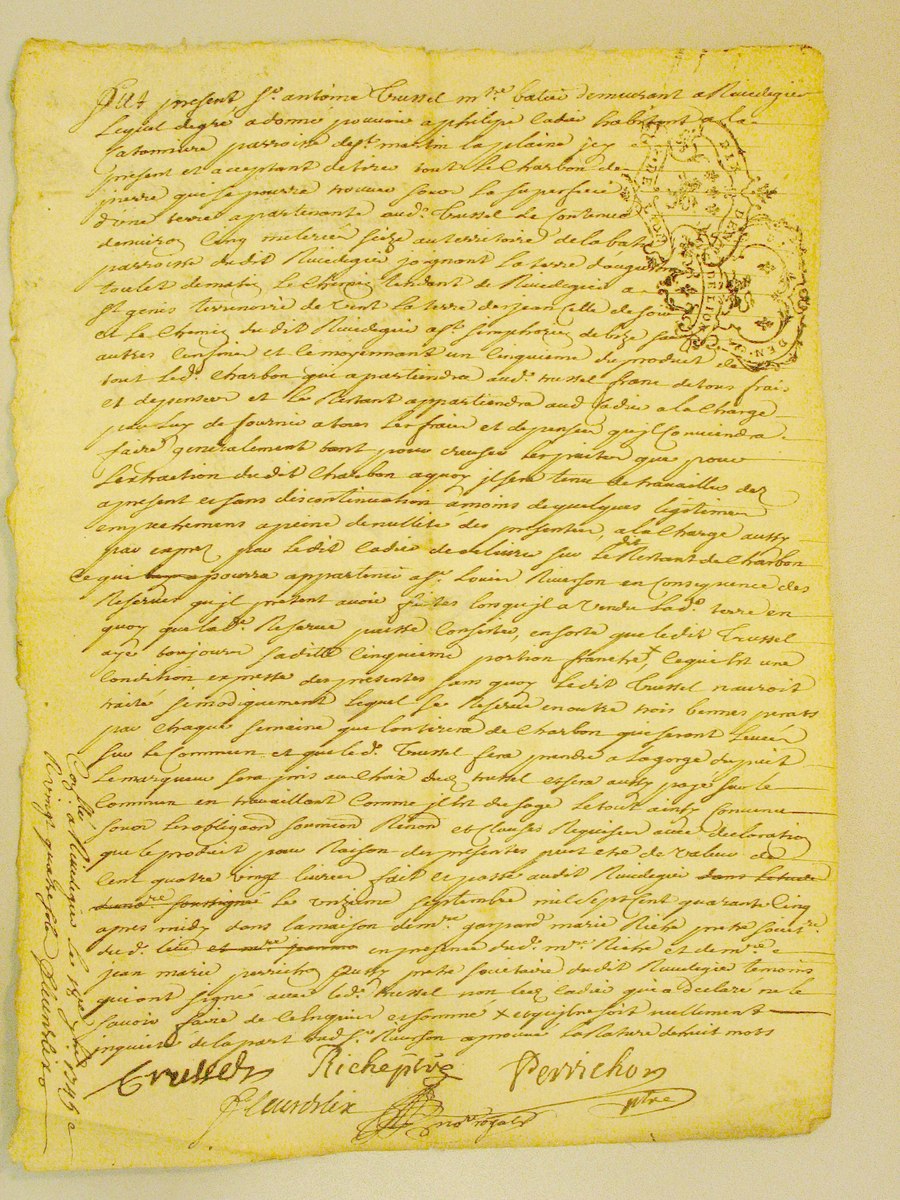 Fut present Sr. antoine Trussel mtre. batie demeurant a Rivedegier
Lequel degre a donné pouvoir a philipe Cadie habitant a la
Catonniere parroisse de st. martin la plaine jcy
present et acceptant de tire tout Le Charbon de
pierre qui se pourra trouver sous la superficie
d'une terre appartenante aud. Trussel de Contenue
denviron Cinq meterée seize au territoire de la
parroisse dudit Rivedegier joignant La terre
de matin Le Chemin tendant de Rivedegier a
St. genis de vent La terre des
et Le Chemin dudit Rivedegier a st. Simphorien de
autres Confins et le moyennant un Cinquieme du produit de
tout Led. Charbon qui apartiendra aud. trussel franc de tous frais
et depenses et Le Restant appartiendra aud Cadie a la Charge
par Luy de fournir a tous Les frais et depenses qujl Conviendra
faire generalement tant pour creuser Les puites que pour
Lextraction du dit Charbon a quoy jl sera tenu de travailler dez
apresent et sans discontinuation amoins de quelques legitimes
empechemens a peine de nullité des presentes, a la Charge aussy
par exprez par Ledit Cadie de delivre sur Le dit Restant de Charbon
Ce qui pourra appartenir a sr. Louis Riverson en Consequence des
Reserves qujl pretent avoir faites lorsqujl a vendu Lad. terre en
quoy que lad. Reserve puisse Consister, en sorte que ledit Trussel
aye toujours sadite Cinquieme portion franche + Ce qui est une
Condition expresse des presentes sans quoy Ledit Trussel nauroit
traité si modiquement Lequel se Reserve en outre trois bennes perats
par Chaque semaine que lon tirera de Charbon qui seront Levées
sur Le Commun et que led. Trussel fera prendre a La gorge du puit
Le marqueur sera pris au Choix dud. trussel et sera aussy payé sur le
Commun en travaillant Comme jl est dusage Le tout ainsy Convenu
sous Les obligaons soumion Renon et Clauses Requises avec declaration
que le produit pour Raison des presentes peut etre de valeur de
Cent quatre vingt Livres fait et passé audit Rivedegier dans Letude
dunore. soussigné Le onzieme septembre mil sept sent quarante Cinq
apres midy dans La maison de mre. gaspard marie Riche pretre societre.
dud. Lieu en presence dud. mre. Riche et de mre.
jean marie perrichon aussy pretre societaire dudit Rivedegier temoins
qui ont signé avec Led. trussel non Led. Cadie qui a declaré ne le
savoir faire de ce Enquis et sommé + et qujl ne soit nullement
inquieté de la part dud Sr. Riverson aprouvé La rature de huit mots
Trussel Richeptre Perrichon
ptre
Fleurdelix
nore royal
Collé
a Rivedegier Le 1745
R vingt quatre sols Fleurdelix
DE LION